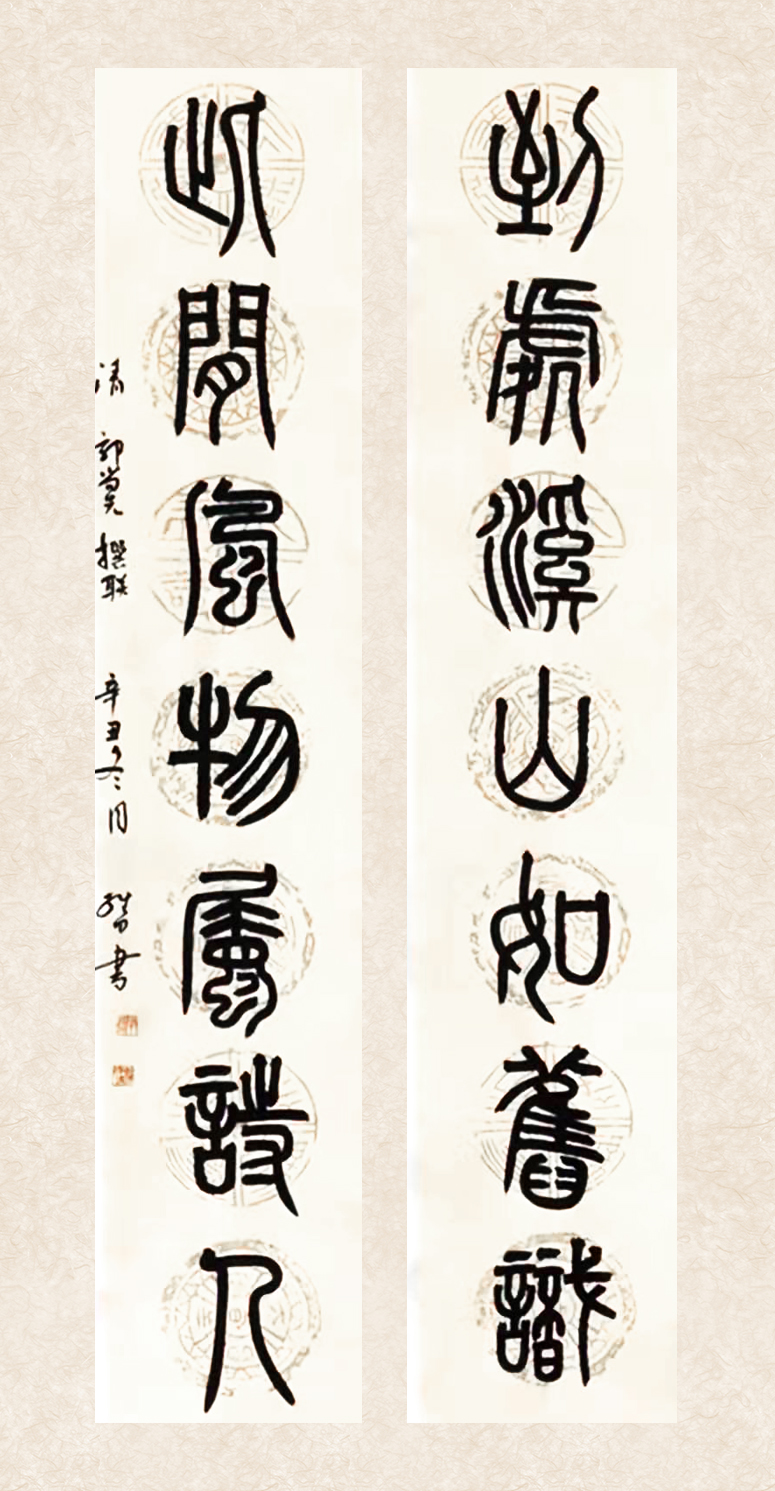 到處溪山如舊識
此間風物屬詩人
清 郭尚先 撰联 辛丑冬月 书